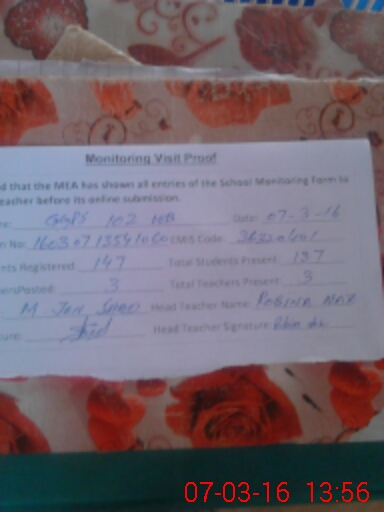 Monitoring Visit Proof
d that the MEA has shown all entries of the School Monitoring Form to
eacher before its online submission.
e: GGPS 102 MB Date: 07-3-16
n No: EMIS Code:
ents Registered 147 Total Students Present 137
ersPosted: 3 Total Teachers Present: 3
M Head Teacher Name: ROBINA NAZ
ure: Head Teacher Signature:
07-03-16 13:56